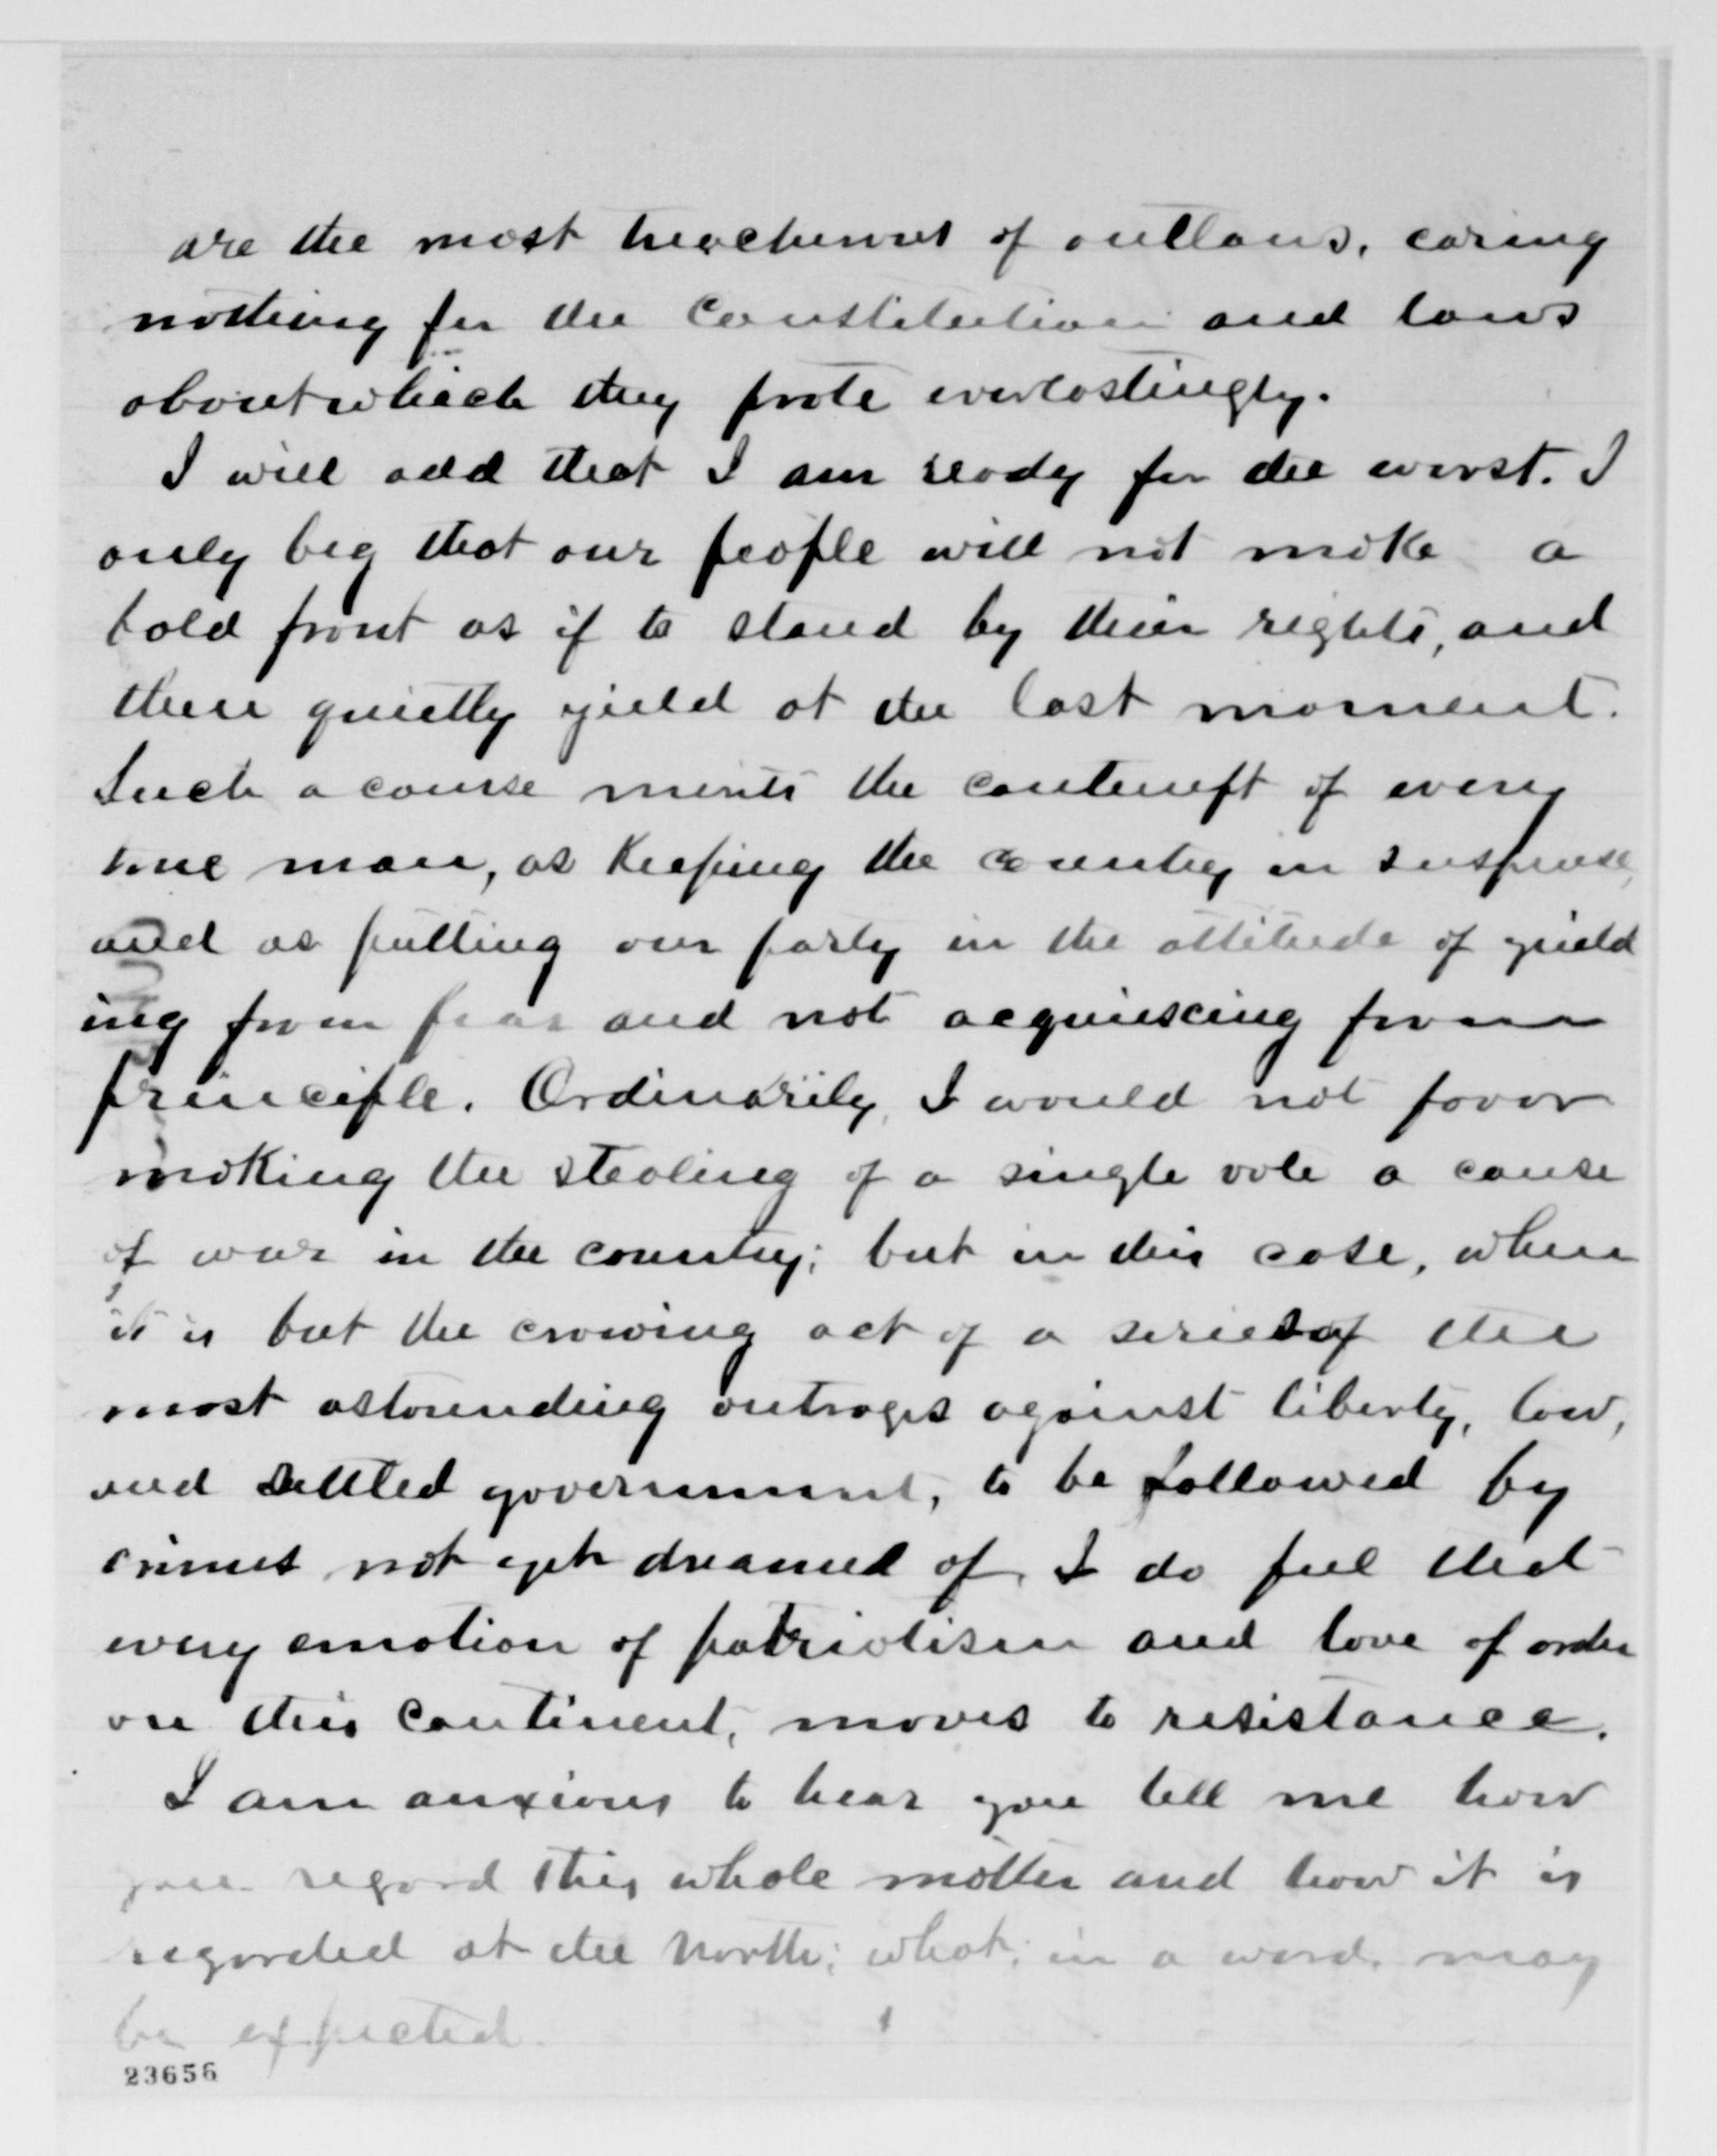 are the most treacherous of outlaws, caring
nothing for the Constitution and laws
about which they prate everlastingly.
I will add that I am ready for the worst. I
only beg that our people will not make a
bold front as if to stand by their rights, and
then quietly yield at the last moment.
Such a course merits the contempt of every
true man, as keeping the country in suspense,
and as putting our party in the attitude of yield
ing from fear and not acquiescing from
principle. Ordinarily, I would not favor
making the stealing of a single vote a cause
of war in the country; but in this case, when
it is but the crowing act of a series of the
most astounding outrages against liberty, law,
and settled government, to be followed by
crimes not yet dreamed of, I do feel that
every emotion of patriotism and love of order
on this continent, moves to resistance.
I am anxious to hear you tell me how
you regard this whole matter and how it is
regarded at the North; what, in a word, may
be expected.
23656